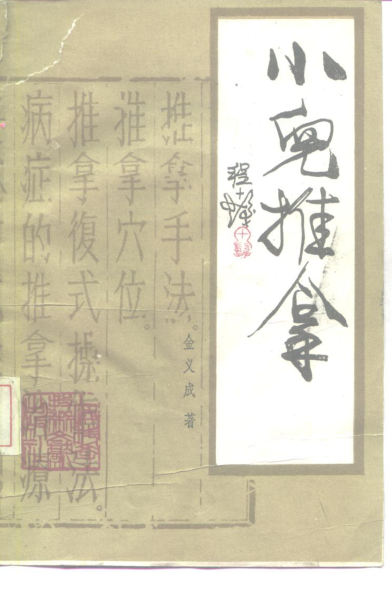 小兒推拿
程十發
金义成 著
推拿手法。
推拿穴位。
推拿復式操作法。
病症的推拿